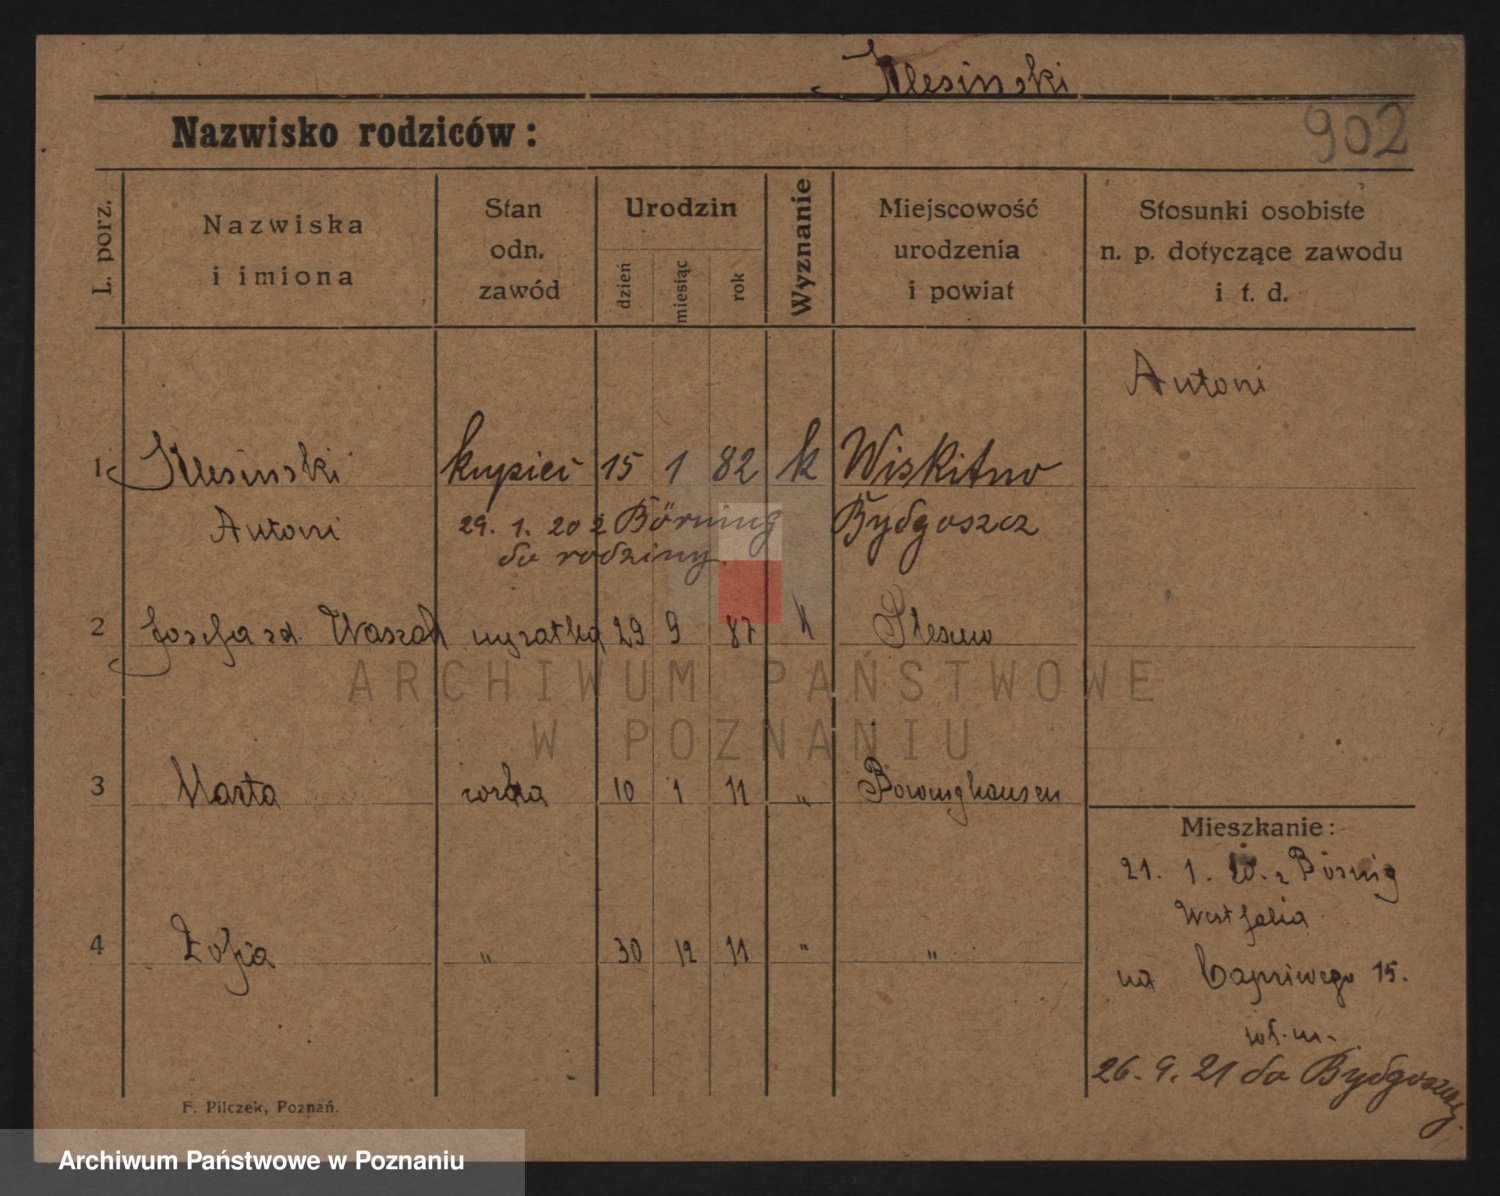 Klesinski
Nazwisko rodziców:
902
L. porz.
Nazwiska
i imiona
Stan
odn.
zawód
Urodzin
dzień
miesiąc
rok
Wyznanie
Miejscowość
urodzenia
i powiat
Stosunki osobiste
n. p. dotyczące zawodu
i t. d.
Antoni
1 Klesinski kupiec 15 1 82 k Wiskitno
Antoni 29. 1. 20 z Börning Bydgoszcz
do rodziny
2 Josefa zd. Waszak 29 9 87 k
ARCHIWUM PAŃSTWOWE
W POZNANIU
3 Marta córka 10 1 11 "
4 Zofja " 30 12 11 " "
Mieszkanie:
21. 1. 20. z Börnig
Westfalia
na Capriwego 15.
26. 9. 21 do Bydgoszczy.
F. Pilczek, Poznań.
Archiwum Państwowe w Poznaniu